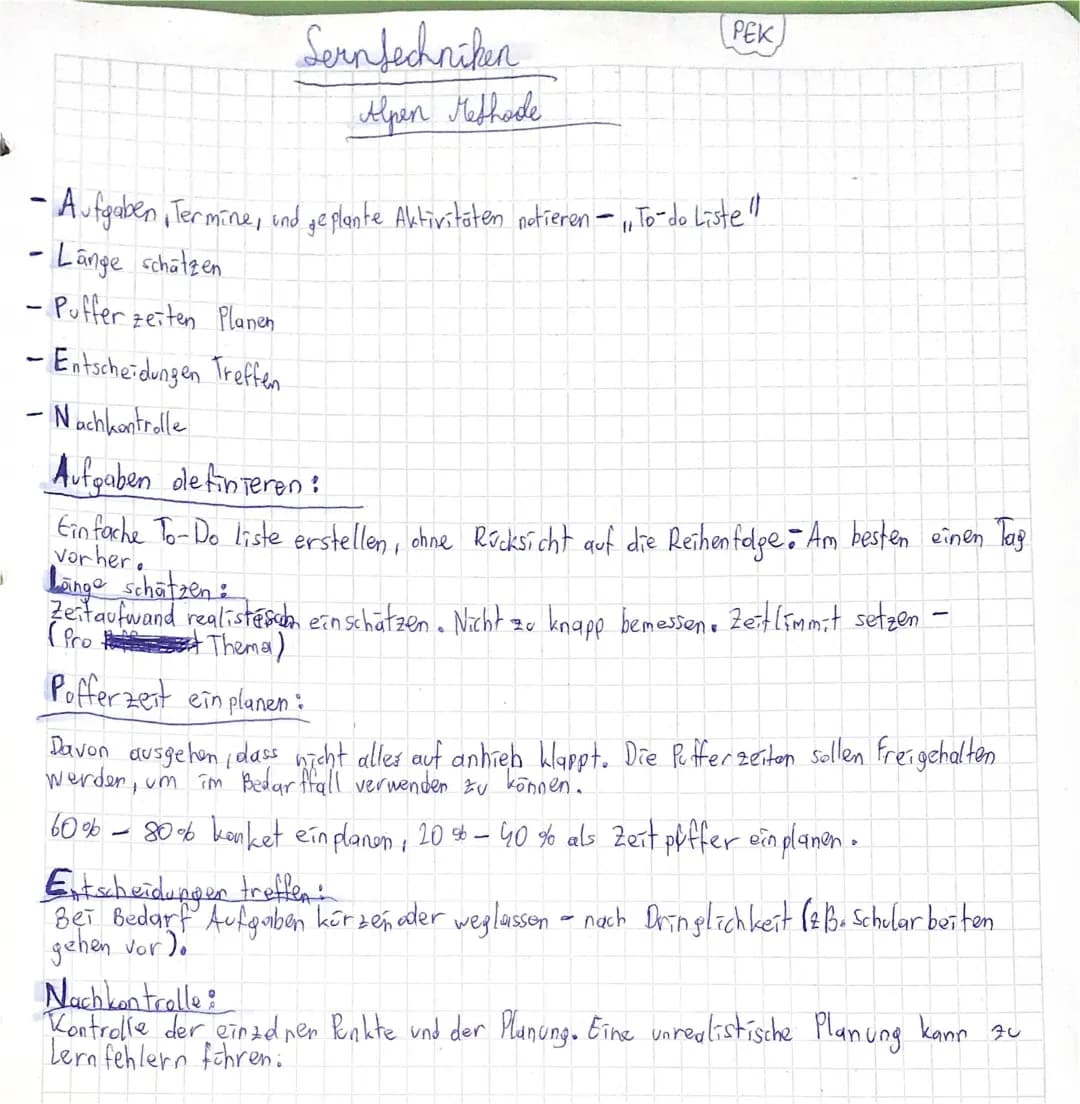 Lerntechniken
PEK
Alpen Methode
- Aufgaben, Termine, und geplante Aktivitäten notieren - „To-do Liste"
- Länge schätzen
- Pufferzeiten Planen
- Entscheidungen Treffen
- Nachkontrolle
Aufgaben definieren:
Einfache To-Do liste erstellen, ohne Rücksicht auf die Reihenfolge. Am besten einen Tag
vorher.
Länge schätzen:
Zeitaufwand realistisch einschätzen. Nicht zu knapp bemessen. Zeitlimmit setzen -
(Pro Thema)
Pufferzeit einplanen:
Davon ausgehen, dass nicht alles auf anhieb klappt. Die Pufferzeiten sollen freigehalten
werden, um im Bedarffall verwenden zu können.
60% - 80% konket einplanen, 20% - 40% als Zeitpuffer einplanen.
Entscheidungen treffen:
Bei Bedarf Aufgaben kürzen oder weglassen - nach Dringlichkeit (zB. Schularbeiten
gehen vor).
Nachkontrolle:
Kontrolle der einzelnen Punkte und der Planung. Eine unrealistische Planung kann zu
Lernfehlern führen.